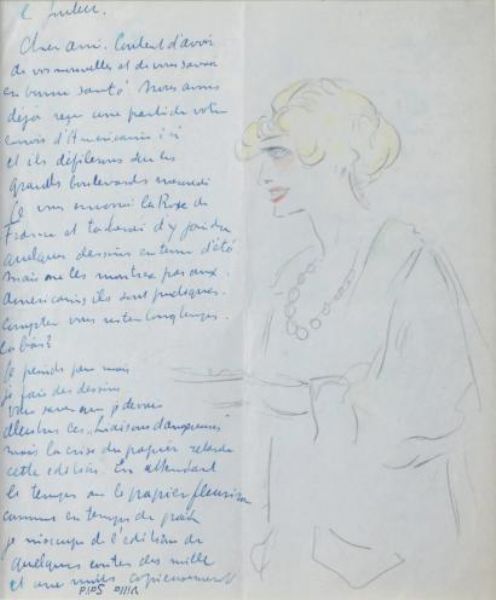 2 juillet.
Cher ami. Content d'avoir
de vos nouvelles et de vous savoir
en bonne santé nous avons
déjà reçu une partie de votre
envoi d'Américains ici
et ils défilerons sur les
grands boulevards mercredi
Je vous enverrai la Rose de
France et tacherai d'y joindre
quelques dessins en tenue d'été
mais ne les montrez pas aux
Américains ils sont pudiques.
comptez vous rester longtemps
là bas?
Je peinds peu mais
je fais des dessins
vous savez que je devais
illustrer les "Liaisons dangereuses"
mais la crise du papier retarde
cette edition. En attendant
le temps où le papier fleurira
comme en temps de paix
je m'occupe de l'edition de
quelques contes des mille
et une nuits copieusement